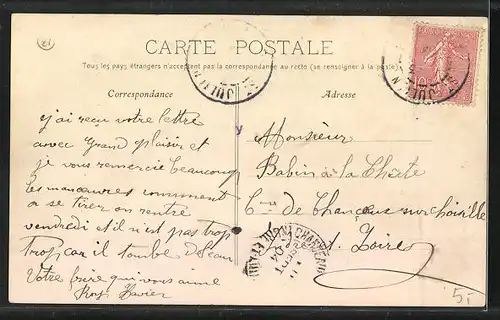 CARTE POSTALE
Tous les pays étrangers n'acceptent pas la correspondance au recto (se renseigner à la poste)
Correspondance
Adresse
j'ai reçu votre lettre
avec Grand plaisir et
je vous remercie beaucoup
les manœuvres commencent
a se tirer on rentre
vendredi et il n'est pas trop
Trop car il tombe de l'eau
Votre frère qui vous aime
Xavier
Monsieur
Babin à la Choite
Cne de Chanceaux sur choisille
Loire
5-